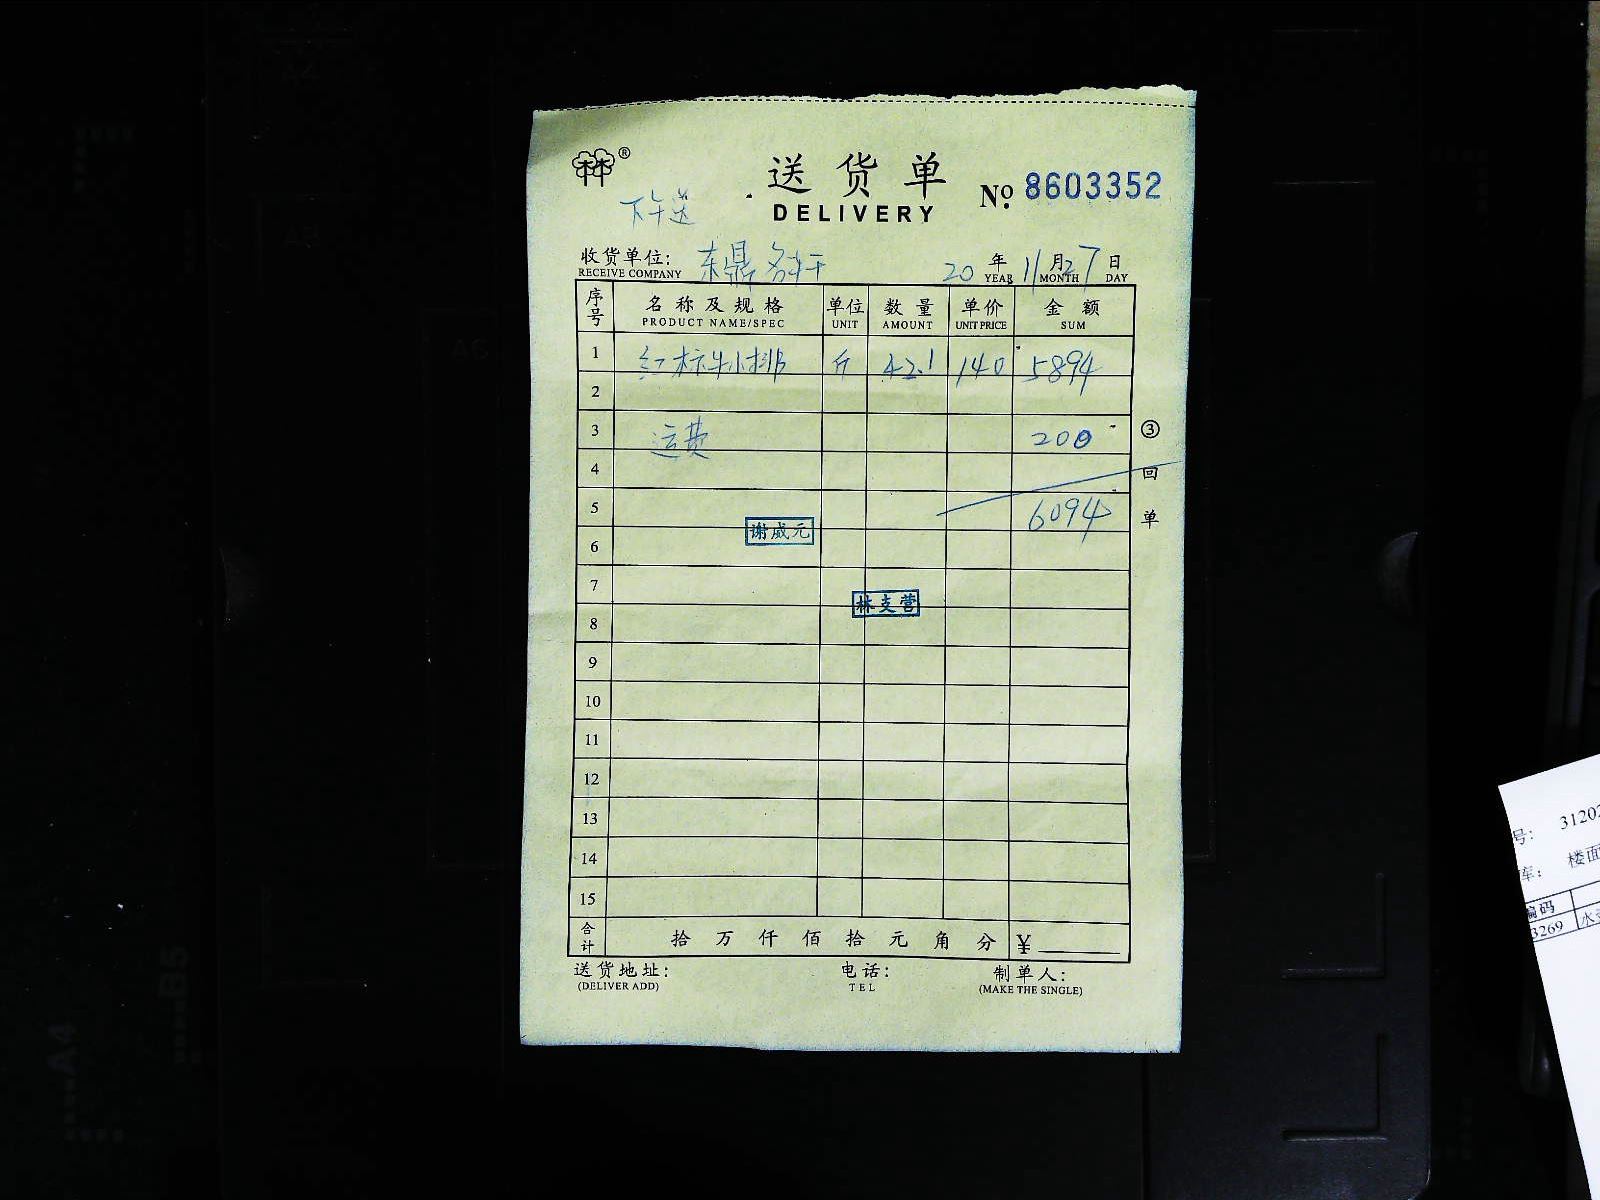 ®
送货单
DELIVERY
№ 8603352
下午送
收货单位: 东鼎
RECEIVE COMPANY
20 年 11 月 27 日
YEAR MONTH DAY
序号 名称及规格 单位 数量 单价 金额
PRODUCT NAME/SPEC UNIT AMOUNT UNIT PRICE SUM
1 红标牛小排 斤 42.1 140 5894
2
3 运费 200
4
5 6094
谢威元
6
7
林支营
8
9
10
11
12
13
14
15
③回单
合计 拾 万 仟 佰 拾 元 角 分 ¥
送货地址: 电话: 制单人:
(DELIVER ADD) TEL (MAKE THE SINGLE)
号: 3120
库: 楼面
编码
3269
A4
B5
A6